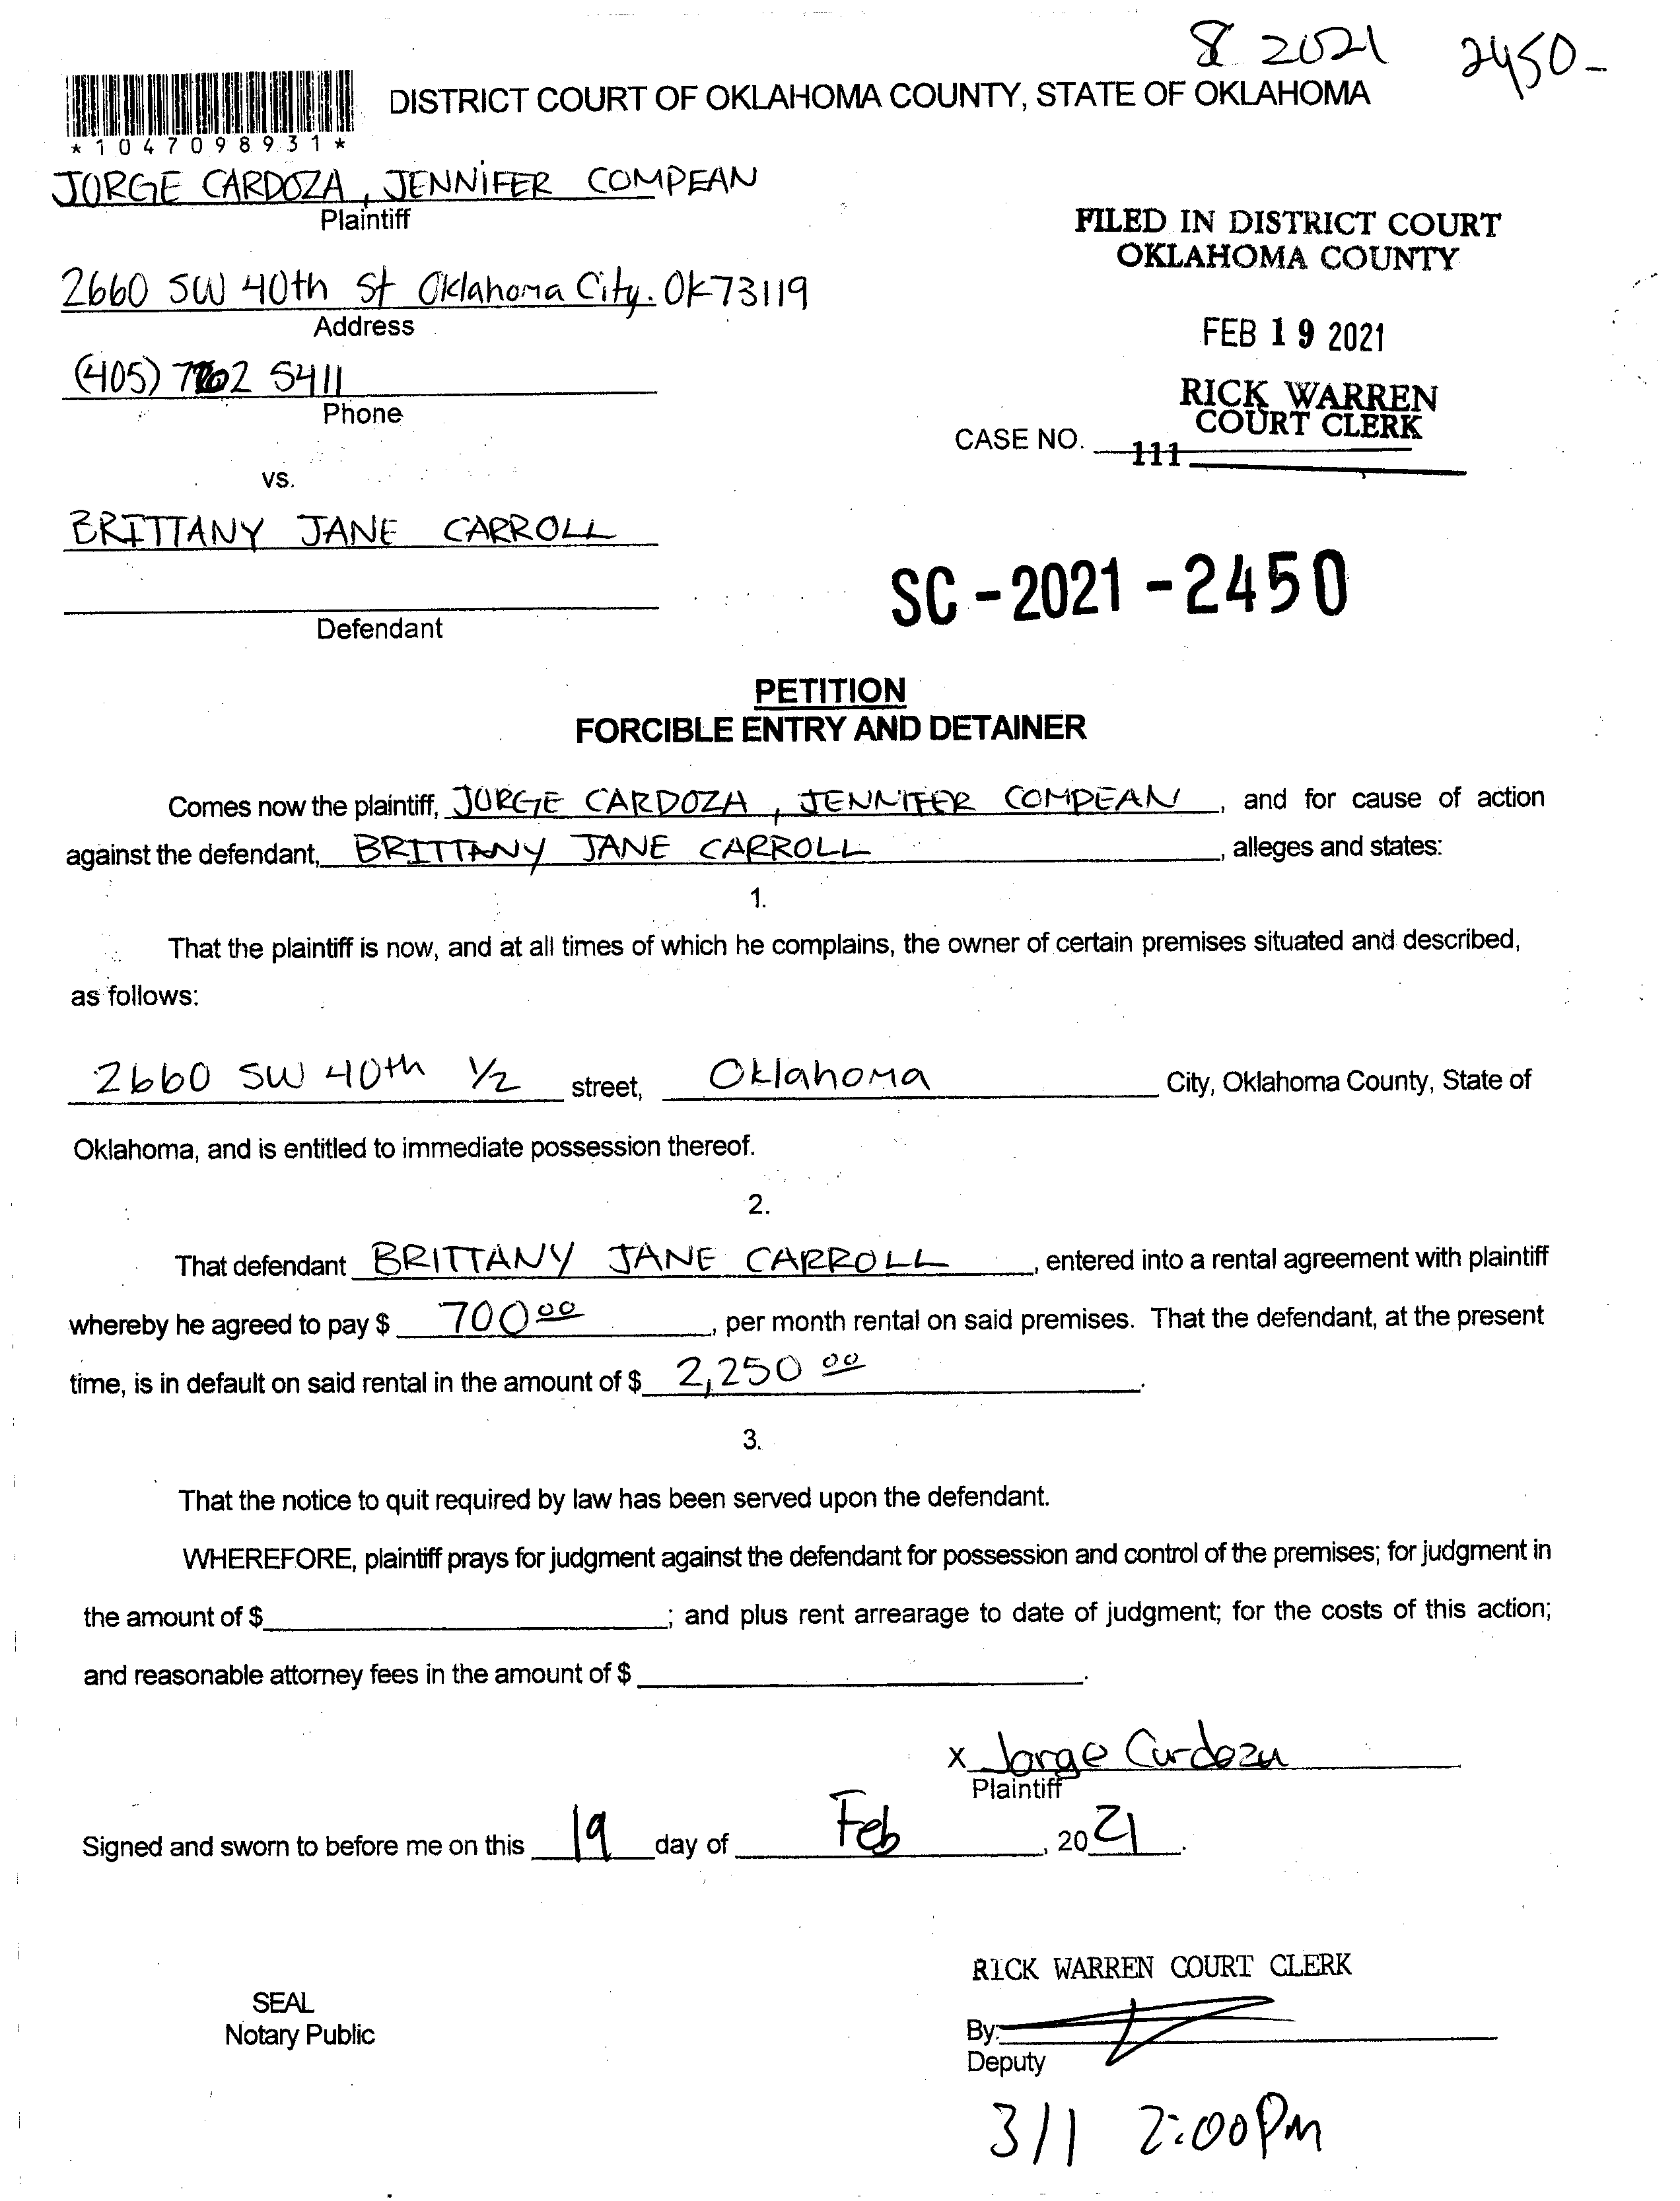 8 2021 2450-
DISTRICT COURT OF OKLAHOMA COUNTY, STATE OF OKLAHOMA
*1047098931*
JORGE CARDOZA, JENNIFER COMPEAN
Plaintiff
FILED IN DISTRICT COURT
OKLAHOMA COUNTY
2660 SW 40th St Oklahoma City. OK 73119
Address
FEB 19 2021
(405) 5411
Phone
RICK WARREN
COURT CLERK
CASE NO.
111
vs.
BRITTANY JANE CARROLL
SC-2021-2450
Defendant
PETITION
FORCIBLE ENTRY AND DETAINER
Comes now the plaintiff, JORGE CARDOZA, JENNIFER COMPEAN, and for cause of action
against the defendant, BRITTANY JANE CARROLL, alleges and states:
1.
That the plaintiff is now, and at all times of which he complains, the owner of certain premises situated and described,
as follows:
2660 SW 40th 1/2 street, Oklahoma City, Oklahoma County, State of
Oklahoma, and is entitled to immediate possession thereof.
2.
That defendant BRITTANY JANE CARROLL, entered into a rental agreement with plaintiff
whereby he agreed to pay $ 700 00, per month rental on said premises. That the defendant, at the present
time, is in default on said rental in the amount of $ 2,250 00.
3.
That the notice to quit required by law has been served upon the defendant.
WHEREFORE, plaintiff prays for judgment against the defendant for possession and control of the premises; for judgment in
the amount of $; and plus rent arrearage to date of judgment; for the costs of this action;
and reasonable attorney fees in the amount of $.
X Jorge Cardoza
Plaintiff
Signed and sworn to before me on this 19 day of Feb, 2021.
RICK WARREN COURT CLERK
SEAL
Notary Public
By:
Deputy
3/1 2:00PM